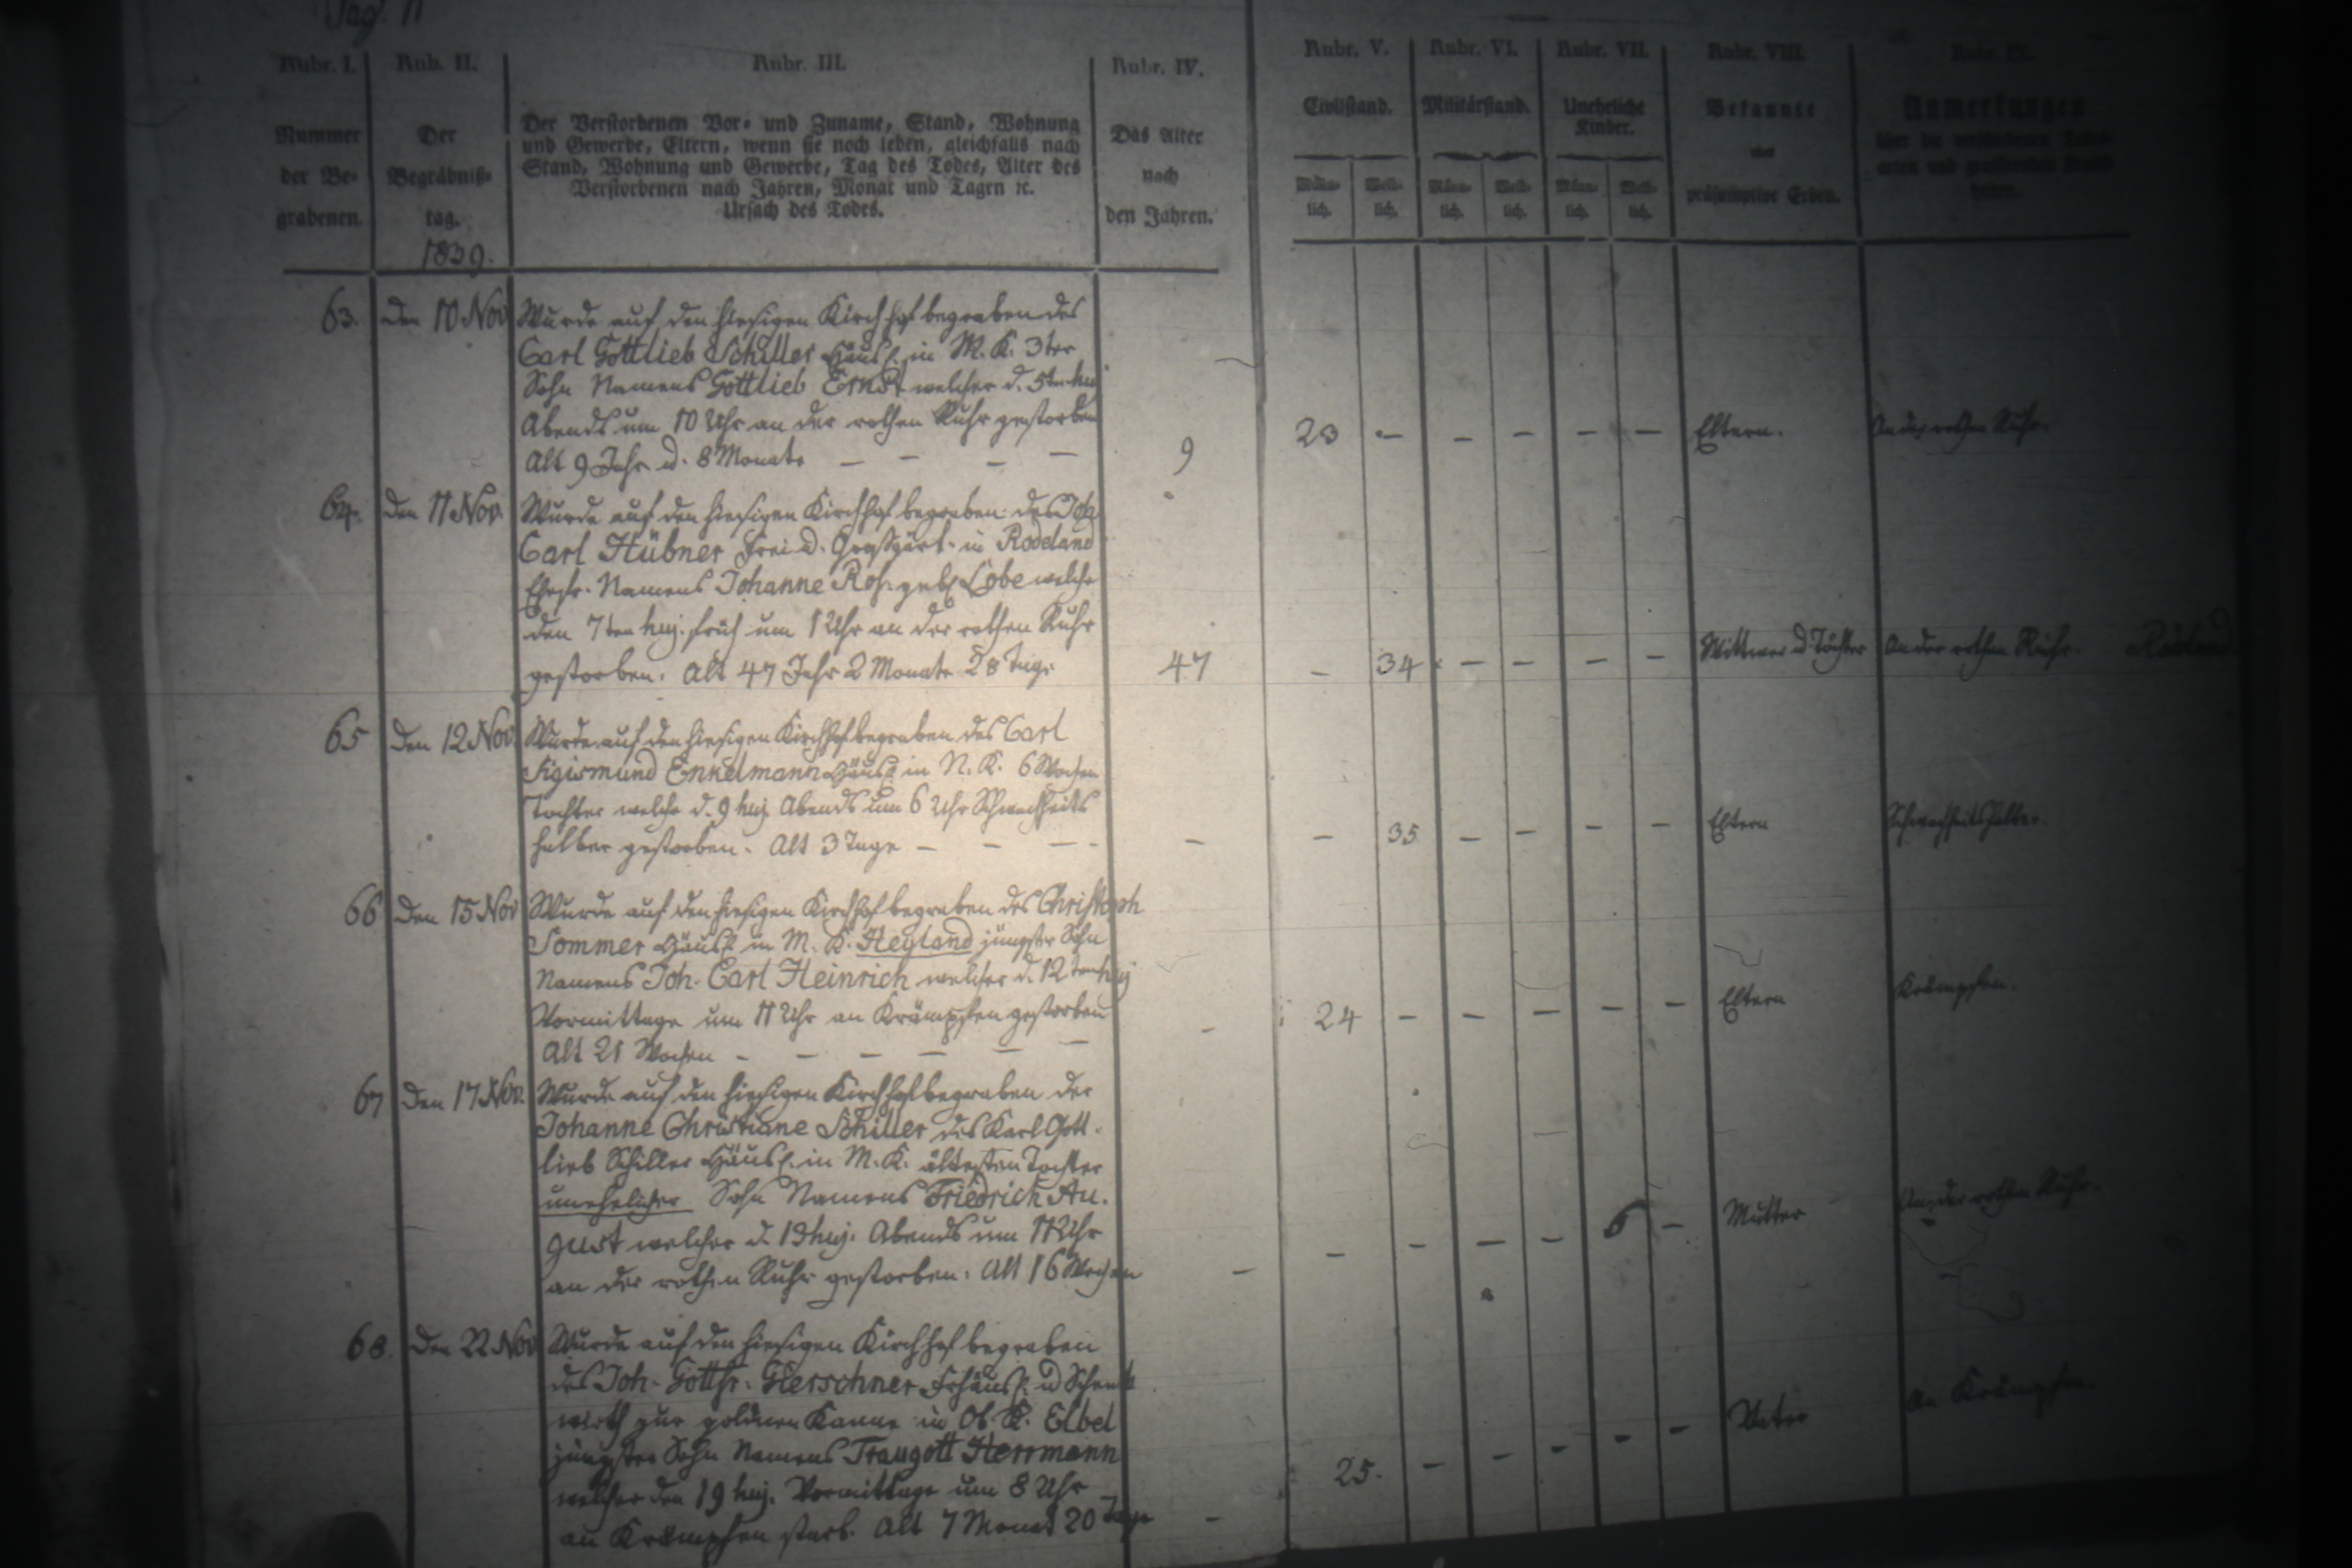 Pag. 11
Rubr. I. Rub. II. Rubr. III. Rubr. IV. Rubr. V. Rubr. VI. Rubr. VII. Rubr. VIII. Rubr. IX.
Nummer der Be-grabenen.
Der Begräbniß-tag.
1839.
Der Verstorbenen Vor- und Zuname, Stand, Wohnung
und Gewerbe, Eltern, wenn sie noch leben, gleichfalls nach
Stand, Wohnung und Gewerbe, Tag des Todes, Alter des
Verstorbenen nach Jahren, Monat und Tagen ꝛc.
Ursach des Todes.
Das Alter nach den Jahren.
Civilstand.
Männ-lich. Weib-lich.
Militärstand.
Männ-lich. Weib-lich.
Uneheliche Kinder.
Männ-lich. Weib-lich.
Bekannte oder präsumptive Erben.
Anmerkungen
63. Den 10 Nov Wurde auf den hiesigen Kirchhof begraben des
Carl Gottlieb Schiller Häusl. in M. K. 3ter
Sohn Namens Gottlieb Ernst welcher d. 5ten huj
Abends um 10 Uhr an der rothen Ruhr gestorben
Alt 9 Jahr u. 8 Monate — — — — 9 23 — — — — — Eltern. An der rothen Ruhr.
64. Den 11 Nov. Wurde auf den hiesigen Kirchhof begraben des Joh
Carl Hübner Frei u. Großgärt. in Rodeland
Ehefr. Namens Johanne Ros. geb. Lobe welche
den 7ten huj. früh um 1 Uhr an der rothen Ruhr
gestorben. Alt 47 Jahr 2 Monate 28 Tage 47 — 34 — — — — Wittwer u. Töchter An der rothen Ruhr. Rodeland
65 Den 12 Nov Wurde auf den hiesigen Kirchhof begraben des Carl
Sigismund Enkelmann Häusl. in N. K. 6 Wochen
Tochter welche d. 9 huj. Abends um 6 Uhr Schwachheits
halber gestorben. Alt 3 Tage — — — - — — 35 — — — — Eltern Schwachheitshalber.
66 Den 15 Nov Wurde auf den hiesigen Kirchhof begraben des Christoph
Sommer Häusl. in M. K. Heyland jüngster Sohn
Namens Joh. Carl Heinrich welcher d. 12ten huj
Vormittage um 11 Uhr an Krämpfen gestorben
Alt 21 Wochen - — — — — — - 24 — — — — — Eltern Krämpfen.
67 Den 17 Nov. Wurde auf den hiesigen Kirchhof begraben der
Johanne Christiane Schiller des Karl Gott-
lieb Schiller Häusl. in M. K. ältesten Tochter
unehelicher Sohn Namens Friedrich Au-
gust welcher d. 13 huj. Abends um 11 Uhr
an der rothen Ruhr gestorben. Alt 16 Wochen — — — — — 6 — Mutter An der rothen Ruhr.
68. Den 22 Nov Wurde auf den hiesigen Kirchhof begraben
des Joh. Gottfr. Herschner Frhäusl. u Schenk
wirth zur goldnen Kanne in Ob. K. Elbel
jüngster Sohn Namens Traugott Herrmann
welcher den 19 huj. Vormittage um 8 Uhr
an Krämpfen starb. Alt 7 Monat 20 Tage — 25. — — — — — Vater An Krämpfen